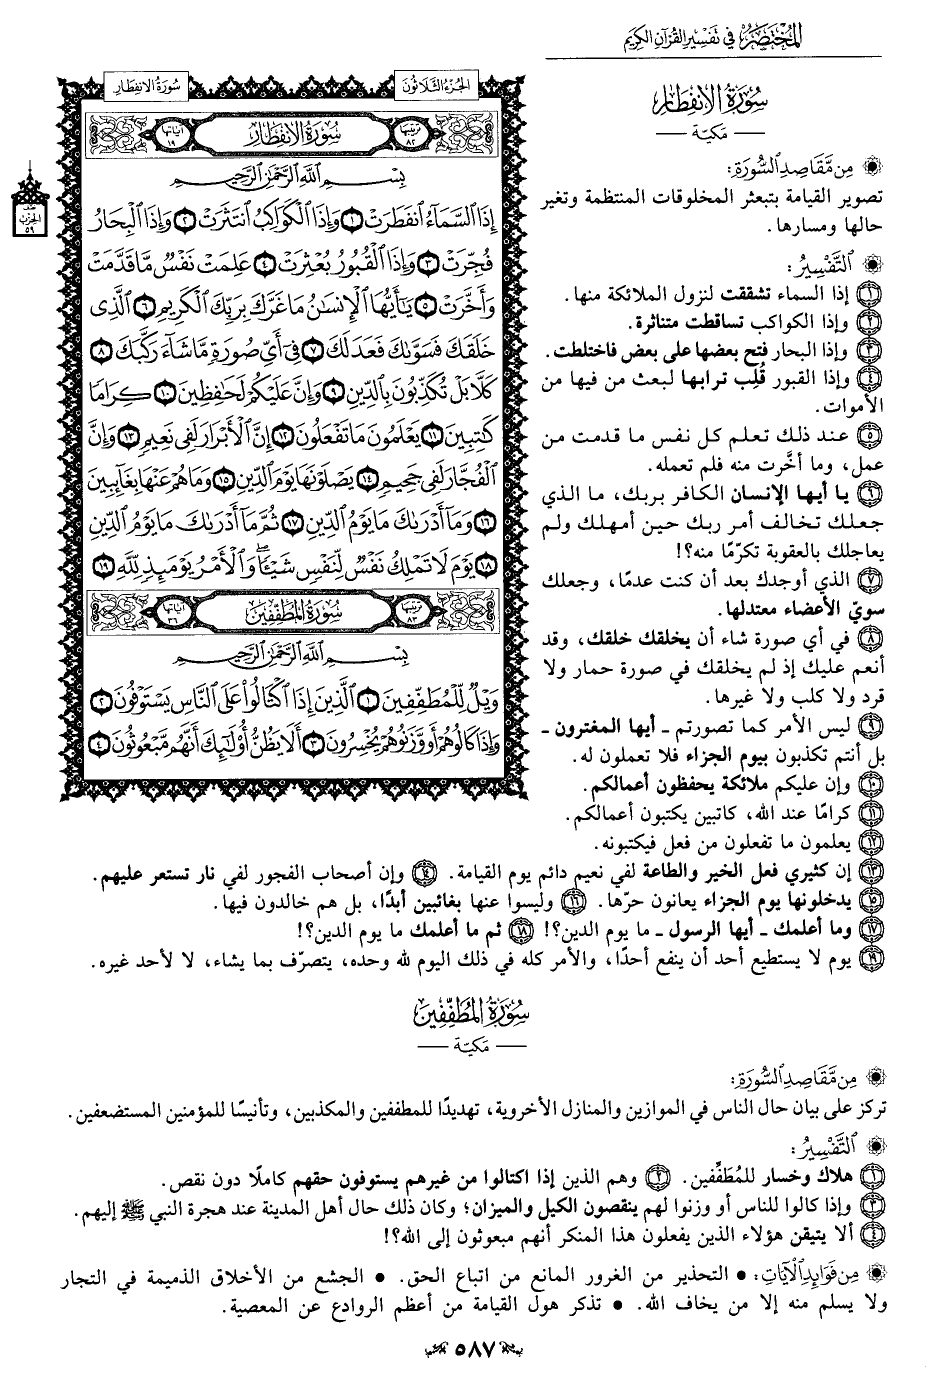 المختصر في تفسير القرآن الكريم
سُورَةُ الِانفِطَارِ
— مَكِّيَّة —
مِن مَّقَاصِدِ ٱلسُّورَةِ:
تصوير القيامة بتبعثر المخلوقات المنتظمة وتغير
حالها ومسارها.
ٱلتَّفْسِيرُ:
١ إذا السماء تشققت لنزول الملائكة منها.
٢ وإذا الكواكب تساقطت متناثرة.
٣ وإذا البحار فتح بعضها على بعض فاختلطت.
٤ وإذا القبور قُلِب ترابها لبعث من فيها من
الأموات.
٥ عند ذلك تعلم كل نفس ما قدمت من
عمل، وما أخَّرت منه فلم تعمله.
٦ يا أيها الإنسان الكافر بربك، ما الذي
جعلك تخالف أمر ربك حين أمهلك ولم
يعاجلك بالعقوبة تكرّمًا منه؟!
٧ الذي أوجدك بعد أن كنت عدمًا، وجعلك
سويّ الأعضاء معتدلها.
٨ في أي صورة شاء أن يخلقك خلقك، وقد
أنعم عليك إذ لم يخلقك في صورة حمار ولا
قرد ولا كلب ولا غيرها.
٩ ليس الأمر كما تصورتم - أيها المغترون -
بل أنتم تكذبون بيوم الجزاء فلا تعملون له.
١٠ وإن عليكم ملائكة يحفظون أعمالكم.
١١ كرامًا عند الله، كاتبين يكتبون أعمالكم.
١٢ يعلمون ما تفعلون من فعل فيكتبونه.
الجُزءُ الثَّلَاثُونَ
سُورَةُ الِانفِطَارِ
ترتيبها ٨٢
سُورَةُ الِانفِطَارِ
آياتها ١٩
بِسْمِ ٱللَّهِ ٱلرَّحْمَٰنِ ٱلرَّحِيمِ
إِذَا ٱلسَّمَآءُ ٱنفَطَرَتْ ١ وَإِذَا ٱلْكَوَاكِبُ ٱنتَثَرَتْ ٢ وَإِذَا ٱلْبِحَارُ
فُجِّرَتْ ٣ وَإِذَا ٱلْقُبُورُ بُعْثِرَتْ ٤ عَلِمَتْ نَفْسٌ مَّا قَدَّمَتْ
وَأَخَّرَتْ ٥ يَٰٓأَيُّهَا ٱلْإِنسَٰنُ مَا غَرَّكَ بِرَبِّكَ ٱلْكَرِيمِ ٦ ٱلَّذِى
خَلَقَكَ فَسَوَّىٰكَ فَعَدَلَكَ ٧ فِىٓ أَىِّ صُورَةٍ مَّا شَآءَ رَكَّبَكَ ٨
كَلَّا بَلْ تُكَذِّبُونَ بِٱلدِّينِ ٩ وَإِنَّ عَلَيْكُمْ لَحَٰفِظِينَ ١٠ كِرَامًا
كَٰتِبِينَ ١١ يَعْلَمُونَ مَا تَفْعَلُونَ ١٢ إِنَّ ٱلْأَبْرَارَ لَفِى نَعِيمٍ ١٣ وَإِنَّ
ٱلْفُجَّارَ لَفِى جَحِيمٍ ١٤ يَصْلَوْنَهَا يَوْمَ ٱلدِّينِ ١٥ وَمَا هُمْ عَنْهَا بِغَآئِبِينَ
١٦ وَمَآ أَدْرَىٰكَ مَا يَوْمُ ٱلدِّينِ ١٧ ثُمَّ مَآ أَدْرَىٰكَ مَا يَوْمُ ٱلدِّينِ
١٨ يَوْمَ لَا تَمْلِكُ نَفْسٌ لِّنَفْسٍ شَيْـًٔا ۖ وَٱلْأَمْرُ يَوْمَئِذٍ لِّلَّهِ ١٩
ترتيبها ٨٣
سُورَةُ المُطَفِّفِينَ
آياتها ٣٦
بِسْمِ ٱللَّهِ ٱلرَّحْمَٰنِ ٱلرَّحِيمِ
وَيْلٌ لِّلْمُطَفِّفِينَ ١ ٱلَّذِينَ إِذَا ٱكْتَالُوا۟ عَلَى ٱلنَّاسِ يَسْتَوْفُونَ ٢
وَإِذَا كَالُوهُمْ أَو وَّزَنُوهُمْ يُخْسِرُونَ ٣ أَلَا يَظُنُّ أُو۟لَٰٓئِكَ أَنَّهُم مَّبْعُوثُونَ ٤
الحزب
٥٩
١٣ إن كثيري فعل الخير والطاعة لفي نعيم دائم يوم القيامة. ١٤ وإن أصحاب الفجور لفي نار تستعر عليهم.
١٥ يدخلونها يوم الجزاء يعانون حرّها. ١٦ وليسوا عنها بغائبين أبدًا، بل هم خالدون فيها.
١٧ وما أعلمك - أيها الرسول - ما يوم الدين؟! ١٨ ثم ما أعلمك ما يوم الدين؟!
١٩ يوم لا يستطيع أحد أن ينفع أحدًا، والأمر كله في ذلك اليوم لله وحده، يتصرّف بما يشاء، لا لأحد غيره.
سُورَةُ المُطَفِّفِينَ
— مَكِّيَّة —
مِن مَّقَاصِدِ ٱلسُّورَةِ:
تركز على بيان حال الناس في الموازين والمنازل الأخروية، تهديدًا للمطففين والمكذبين، وتأنيسًا للمؤمنين المستضعفين.
ٱلتَّفْسِيرُ:
١ هلاك وخسار للمُطَفِّفين. ٢ وهم الذين إذا اكتالوا من غيرهم يستوفون حقهم كاملًا دون نقص.
٣ وإذا كالوا للناس أو وزنوا لهم ينقصون الكيل والميزان؛ وكان ذلك حال أهل المدينة عند هجرة النبي ﷺ إليهم.
٤ ألا يتيقن هؤلاء الذين يفعلون هذا المنكر أنهم مبعوثون إلى الله؟!
مِن فَوَائِدِ ٱلْآيَاتِ: • التحذير من الغرور المانع من اتباع الحق. • الجشع من الأخلاق الذميمة في التجار
ولا يسلم منه إلا من يخاف الله. • تذكر هول القيامة من أعظم الروادع عن المعصية.
٥٨٧